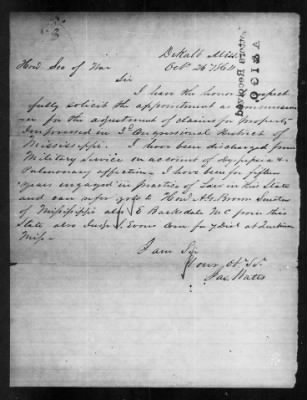 DeKalb Miss
Oct 26th 1864
Hon Sec of War
Sir
I have the honor respect
fully solicit the appointment as commission
er for the adjustment of claims for property
Impressed in 3d Congressional District of
Mississippi. I have been discharged from
Military Service on account of Dyspepsia &
Pulmonary affection - I have been for fifteen
years engaged in practice of Law in this State
and can refer you to Hon A G Brown Senator
of Mississippi also E Barksdale MC from this
State also Evans for Dist at
Miss -
I am Sir
Your Ob Sv
Jas Watts